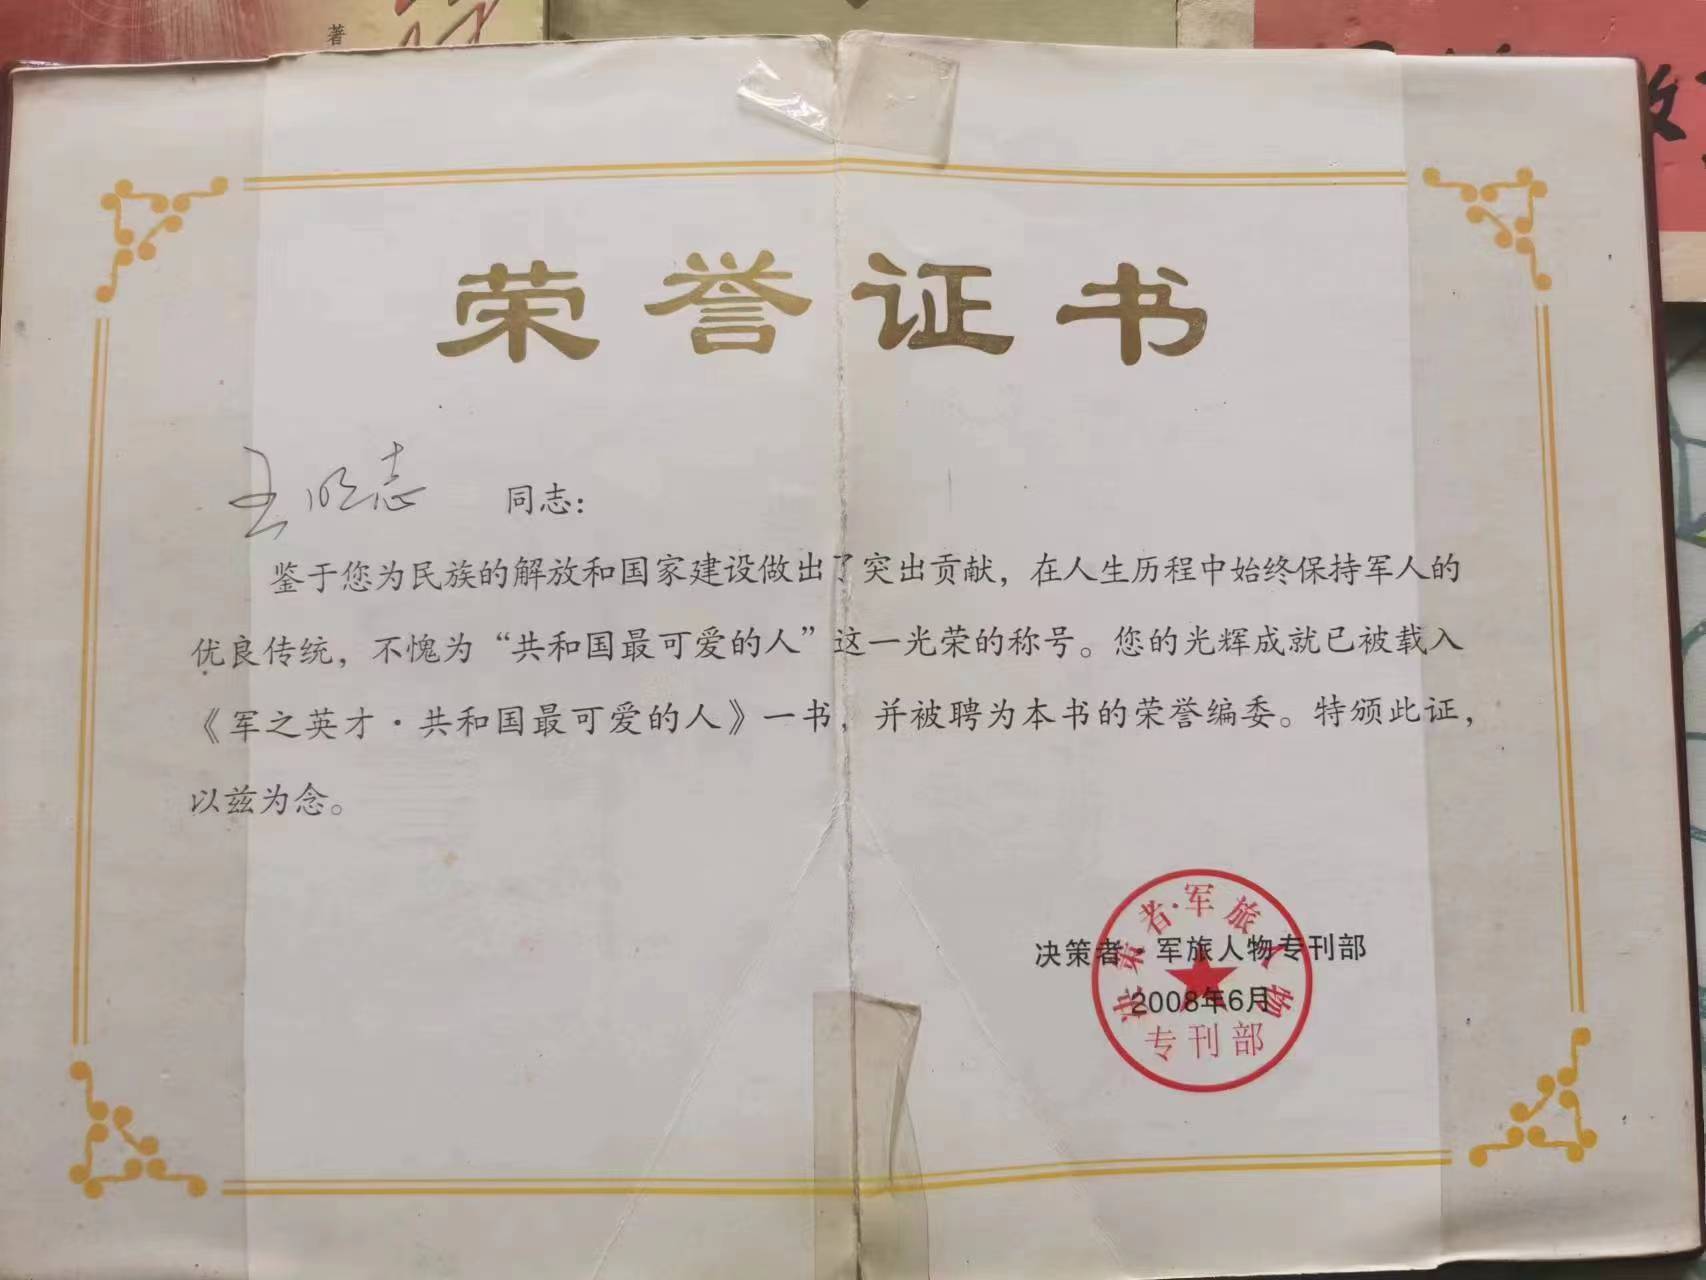 著
荣誉证书
王明志 同志：
鉴于您为民族的解放和国家建设做出了突出贡献，在人生历程中始终保持军人的
优良传统，不愧为“共和国最可爱的人”这一光荣的称号。您的光辉成就已被载入
《军之英才·共和国最可爱的人》一书，并被聘为本书的荣誉编委。特颁此证，
以兹为念。
决策者·军旅人物专刊部
2008年6月
决策者·军旅人物
专刊部